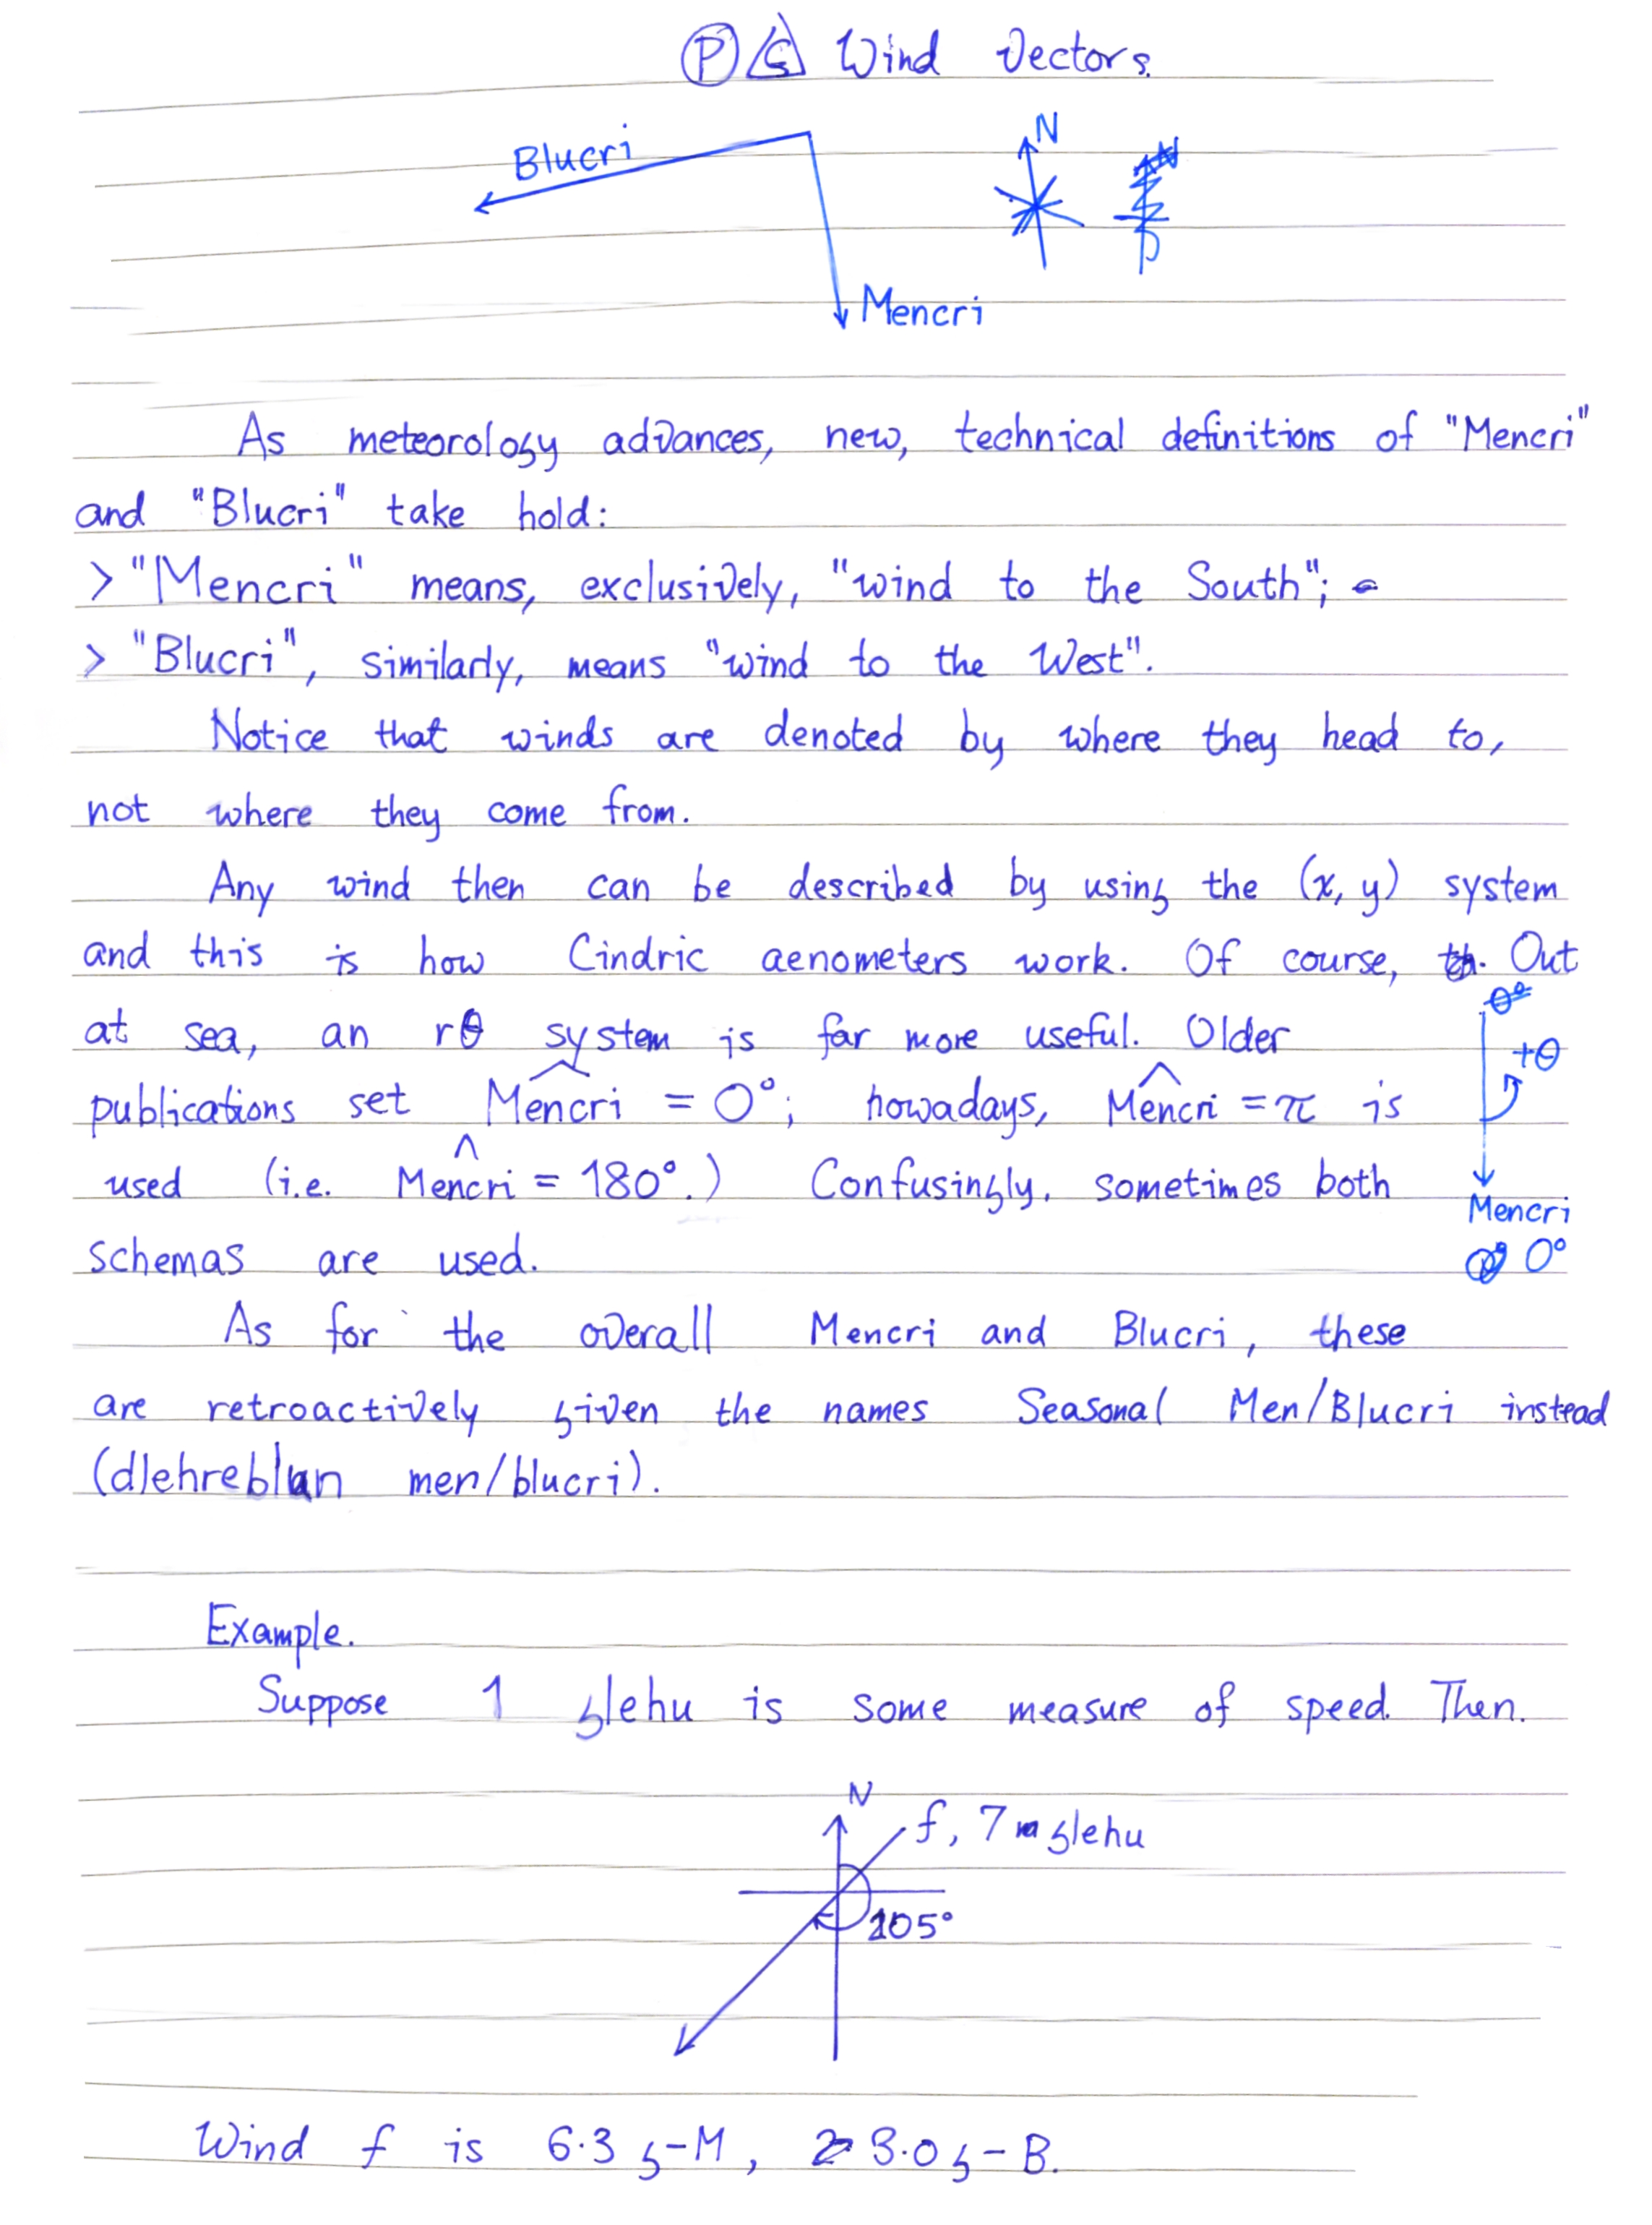 P S Wind Vectors.
Blucri
N
Mencri
As meteorology advances, new, technical definitions of "Mencri"
and "Blucri" take hold:
> "Mencri" means, exclusively, "wind to the South";
> "Blucri", similarly, means "wind to the West".
Notice that winds are denoted by where they head to,
not where they come from.
Any wind then can be described by using the (x, y) system
and this is how Cindric aenometers work. Of course, Out
at sea, an rθ system is far more useful. Older
publications set Mencri = 0°; nowadays, Mencri = π is
used (i.e. Mencri = 180°.) Confusingly, sometimes both
schemas are used.
+θ
Mencri
0°
As for the overall Mencri and Blucri, these
are retroactively given the names Seasonal Men/Blucri instead
(dlehreblan men/blucri).
Example.
Suppose 1 glehu is some measure of speed. Then.
N
f, 7 glehu
205°
Wind f is 6.3 g-M, 3.0 g-B.